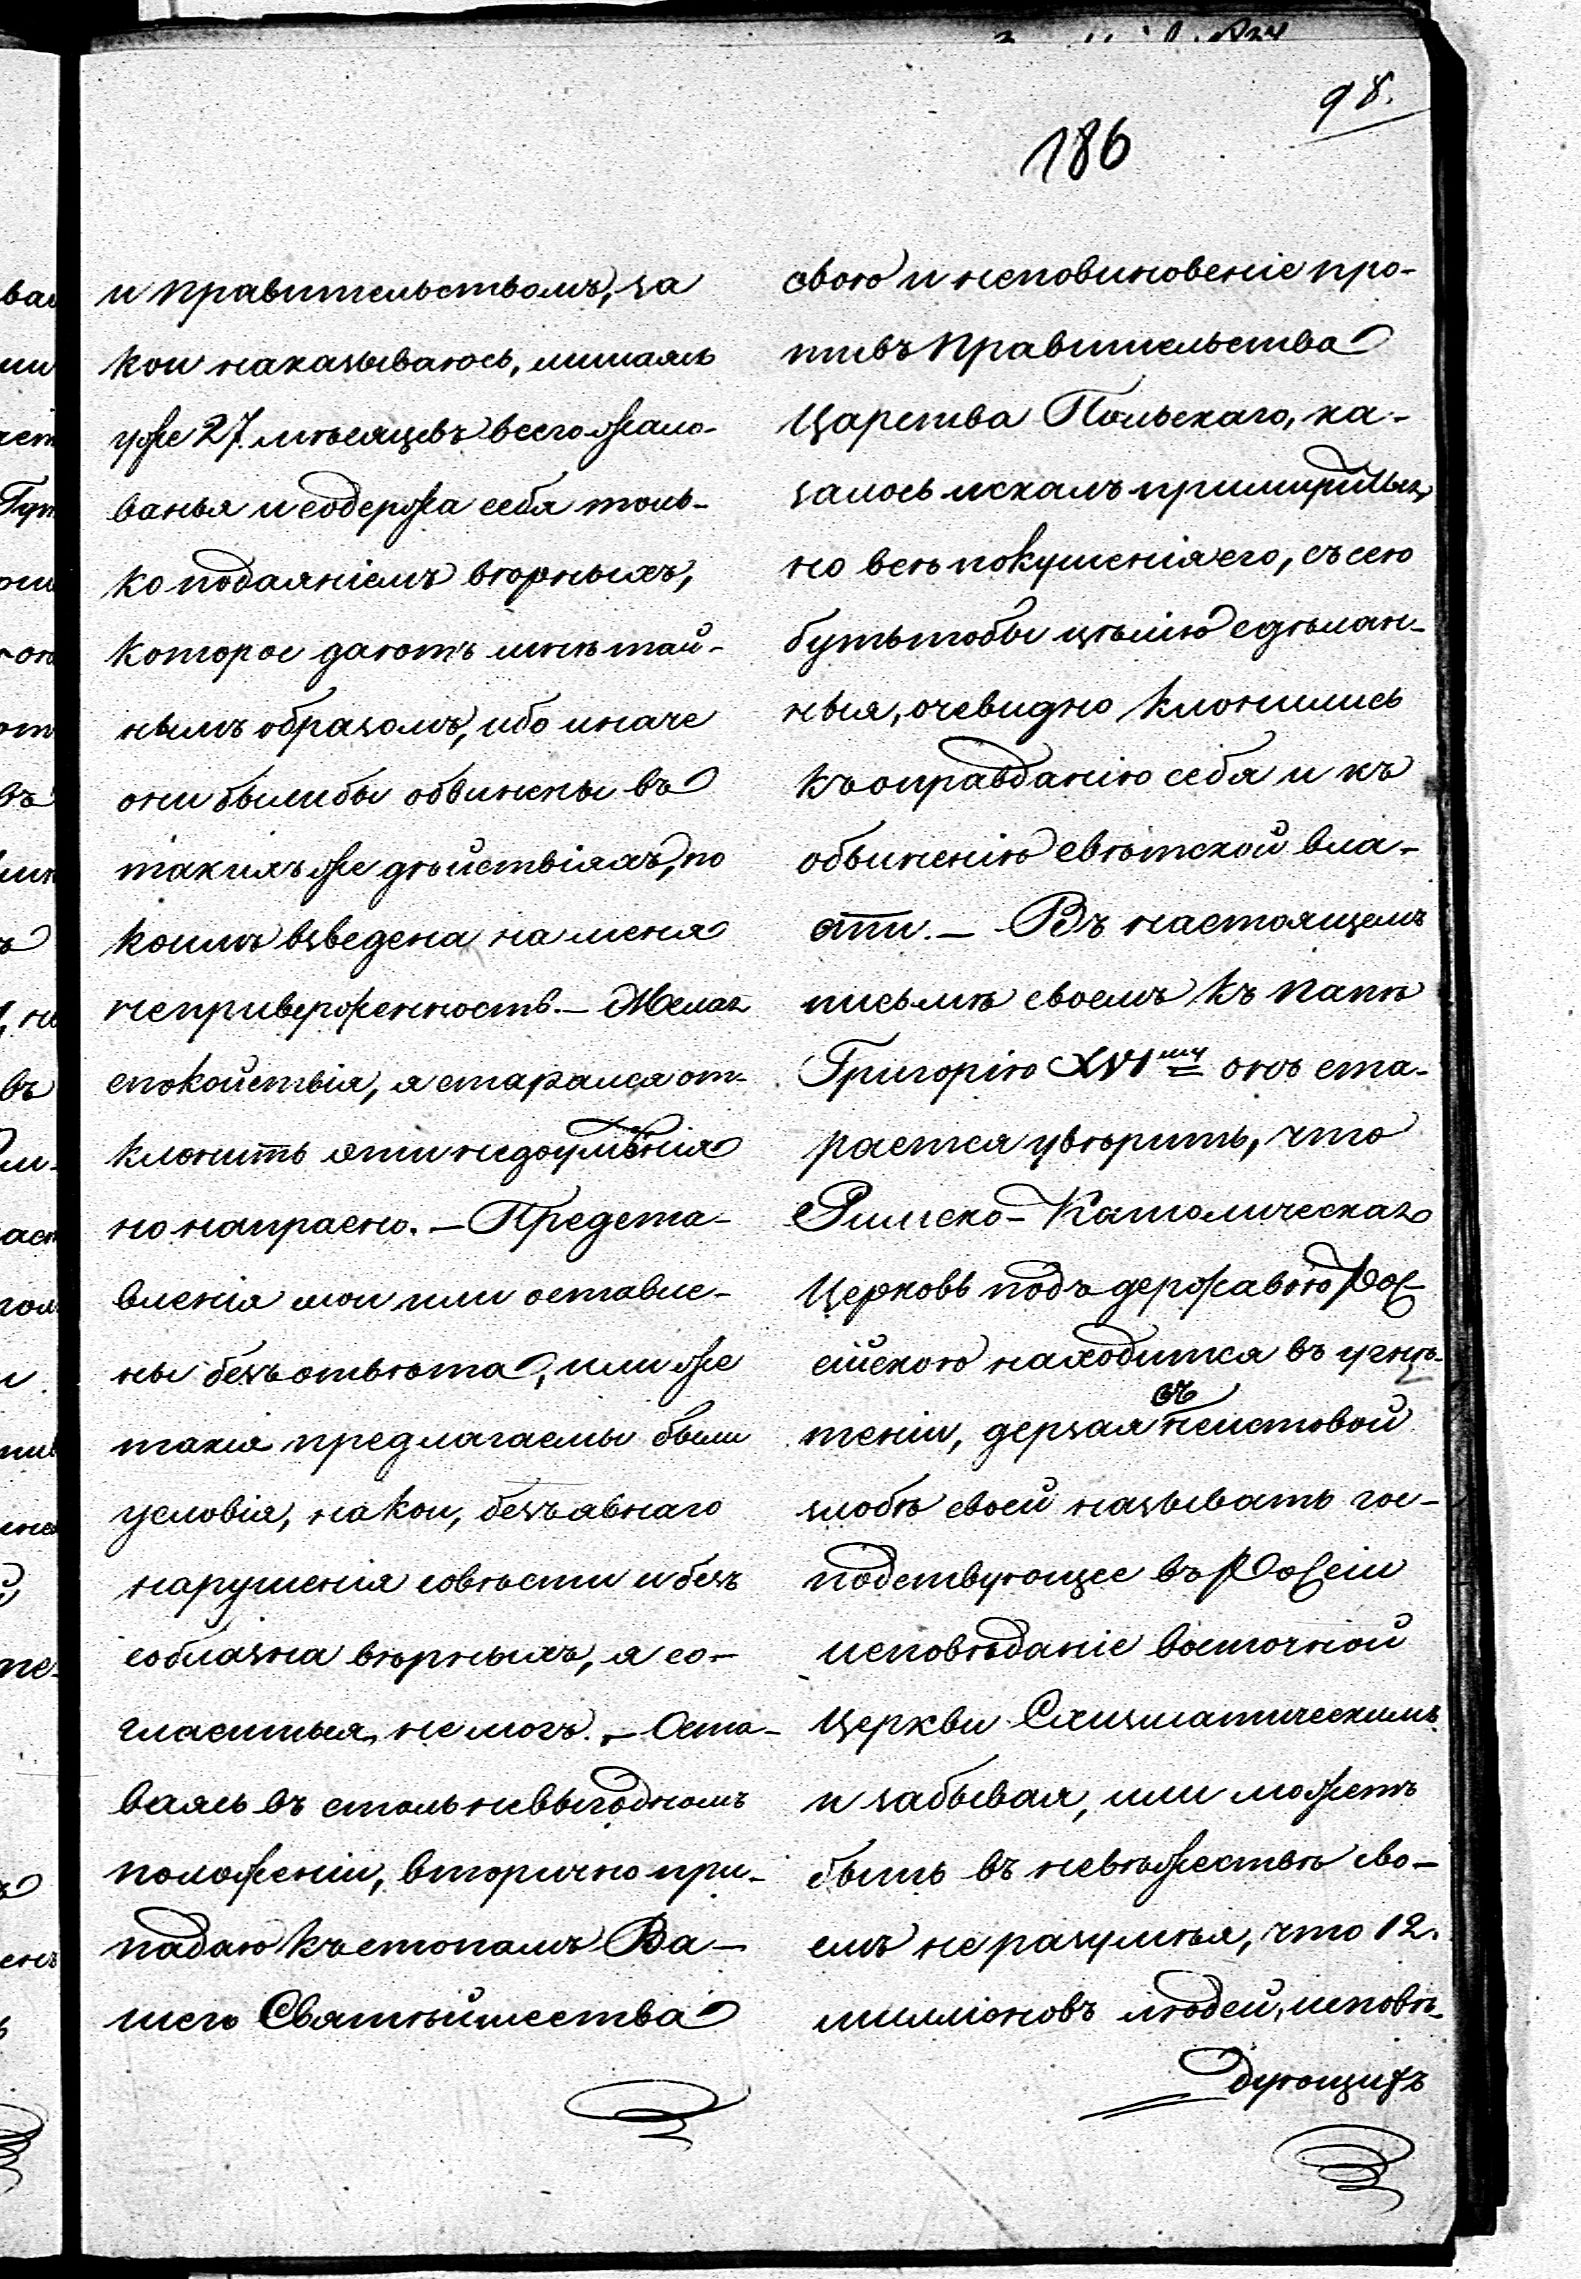 98.
186
и правительствомъ, за
кои наказываюсь, лишаясь
уже 27. мѣсяцевъ всего жало-
ванья и содержа себя толь-
ко подаяніемъ вѣрныхъ,
которое даютъ мнѣ тай-
нымъ образомъ, ибо иначе
они былибы обвинены въ
такихъ же дѣйствіяхъ, по
коимъ взведена на меня
неприверженность. – Желая
спокойствія, я старался от-
клонить эти недоумѣнія
но напрасно. – Предста-
вленія мои или оставле-
ны безъ отвѣта, или же
такія предлагаемы были
условія, на кои, безъ явнаго
нарушенія совѣсти и безъ
соблазна вѣрныхъ, я со-
гласиться не могъ. – Оста-
ваясь въ столь невыгодномъ
положеніи, вторично при-
падаю къ стопамъ Ва-
шего Святѣйшества
свою и неповиновеніе про-
тивъ Правительства
Царства Польскаго, ка-
залось искалъ примириться,
но всѣ покушенія его, съ сею
будтобы цѣлію сдѣлан-
ныя, очевидно клонились
къ оправданію себя и къ
обвиненію свѣтской вла-
сти. – Въ настоящемъ
письмѣ своемъ къ папѣ
Григорію XVI му онъ ста-
рается увѣрить, что
Римско-Католическая
Церковь подъ державою Рос-
сійскою находится въ угнѣ-
теніи, дерзая въ неистовой
злобѣ своей называть гос-
подствующее въ Россіи
исповѣданіе восточной
Церкви Схизматическимъ
и забывая, или можетъ
быть въ невѣжествѣ сво-
емъ не разумѣя, что 12.
милліоновъ людей, исповѣ-
дующихъ